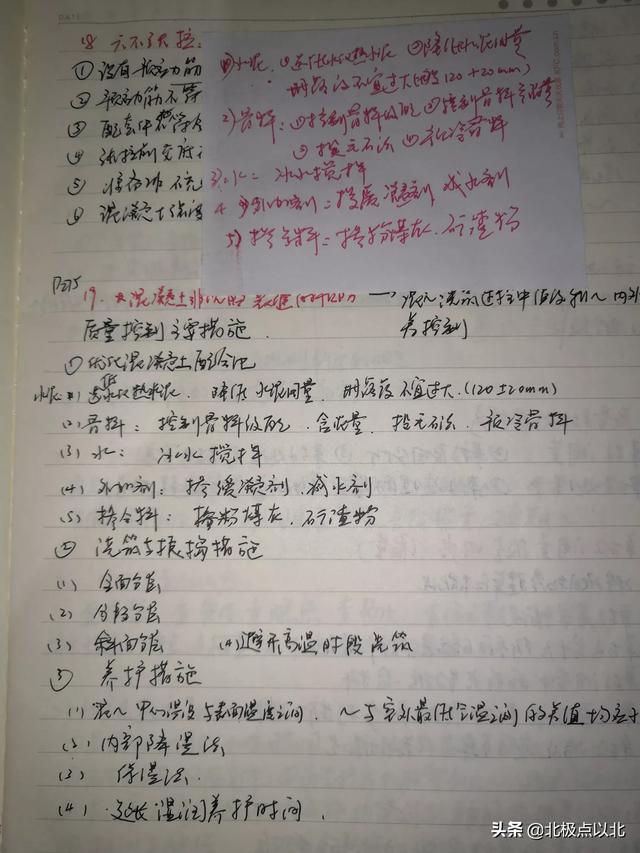 DATE
18 六不张拉:
① 没有预应力筋
② 预应力筋不
③ 配套件不
④ 张拉前交底
⑤
⑥ 混凝土强度
①水泥: ①选低水化热水泥 ②降低水泥用量
坍落度不宜过大(120±20mm)
2)骨料: ①控制骨料级配 ②控制骨料含泥量
③投毛石 ④冷骨料
3)水: 冰水搅拌
4 外加剂: 掺缓凝剂 减水剂
5) 掺合料: 掺粉煤灰、矿渣粉
P275
19. 大混凝土 → 混凝浇筑过程中
质量控制主要措施. 控制
①优化混凝土配合比
水泥(1) 选低水化热水泥、降低水泥用量、坍落度不宜过大.(120±20mm)
(2) 骨料: 控制骨料级配、含泥量、投毛石、预冷骨料
(3) 水: 冰水搅拌
(4) 外加剂: 掺缓凝剂、减水剂
(5) 掺合料: 掺粉煤灰、矿渣粉
② 浇筑与振捣措施
(1) 全面分层
(2) 分段分层
(3) 斜面分层 (4)避开高温时段浇筑
③ 养护措施
(1) 混~中心温度与表面温度之间、~与室外最低气温之间的差值均应
(2) 内部降温法
(3) 保温法.
(4) 延长湿润养护时间.
头条 @北极点以北